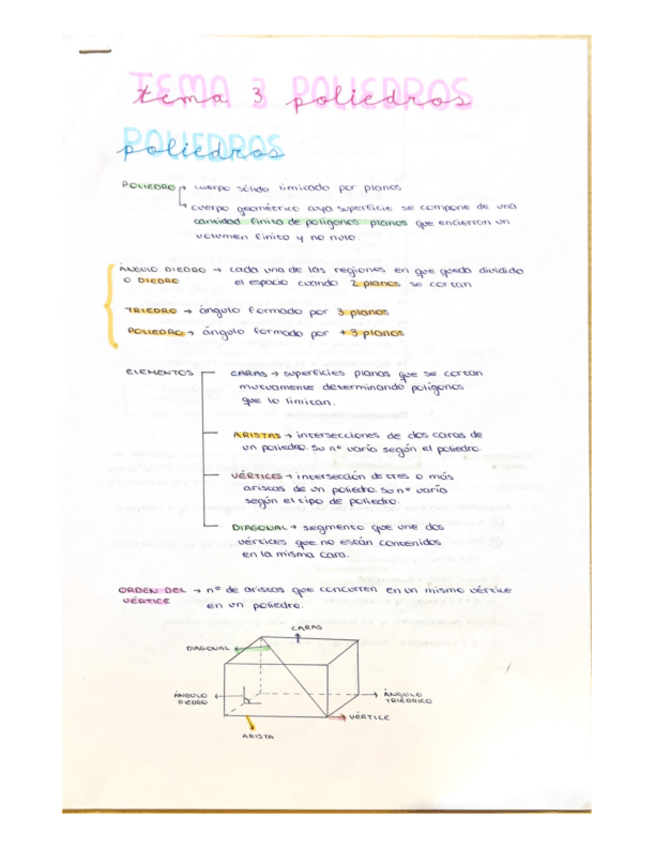 TEMA 3 POLIEDROS
tema 3 poliedros
POLIEDROS
poliedros
POLIEDRO → cuerpo sólido limitado por planos
→ cuerpo geométrico cuya superficie se compone de una
cantidad finita de polígonos planos que encierran un
volumen finito y no nulo.
ÁNGULO DIEDRO → cada una de las regiones en que queda dividido
O DIEDRO el espacio cuando 2 planos se cortan
TRIEDRO → ángulo formado por 3 planos
POLIEDRO → ángulo formado por + 3 planos
ELEMENTOS
CARAS → superficies planas que se cortan
mutuamente determinando polígonos
que lo limitan.
ARISTAS → intersecciones de dos caras de
un poliedro. Su nº varía según el poliedro.
VÉRTICES → intersección de tres o más
aristas de un poliedro. Su nº varía
según el tipo de poliedro.
DIAGONAL → segmento que une dos
vértices que no están contenidos
en la misma cara.
ORDEN DEL → nº de aristas que concurren en un mismo vértice
VÉRTICE en un poliedro.
CARAS
DIAGONAL
ÁNGULO
DIEDRO
ÁNGULO
TRIÉDRICO
VÉRTICE
ARISTA